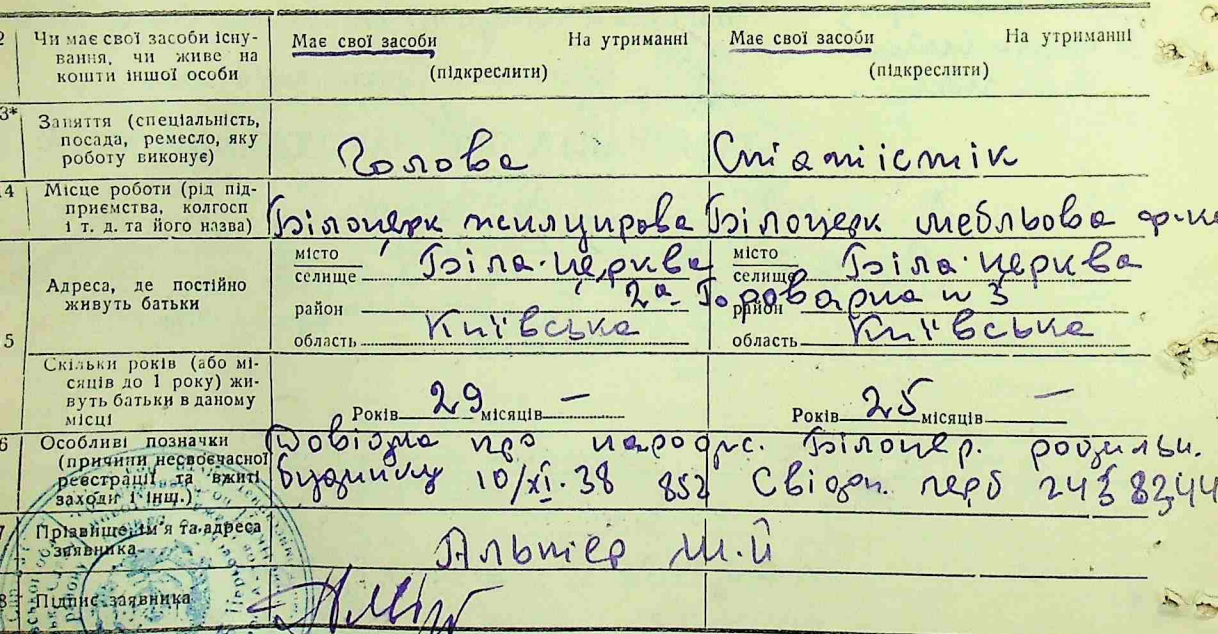 2 Чи має свої засоби існу-
вання, чи живе на
кошти іншої особи
Має свої засоби На утриманні
(підкреслити)
Має свої засоби На утриманні
(підкреслити)
3* Заняття (спеціальність,
посада, ремесло, яку
роботу виконує)
Голова
Статістік
4 Місце роботи (рід під-
приємства, колгосп
і т. д. та його назва)
Білоцерк
Білоцерк мебльова ф-ка
5 Адреса, де постійно
живуть батьки
місто
селище Біла-Церква
район
область Київська
місто
селище Біла-Церква
район
область Київська
2а
3
Скільки років (або мі-
сяців до 1 року) жи-
вуть батьки в даному
місці
Років 29 місяців —
Років 25 місяців —
6 Особливі позначки
(причини несвоєчасної
реєстрації та вжиті
заходи і інш.)
Довідка про народж. Білоцер. родильн.
будинку 10/XI.38 852 Свідоц.
7 Прізвище, ім'я та адреса
заявника
Альтер Ш.Й
8 Підпис заявника